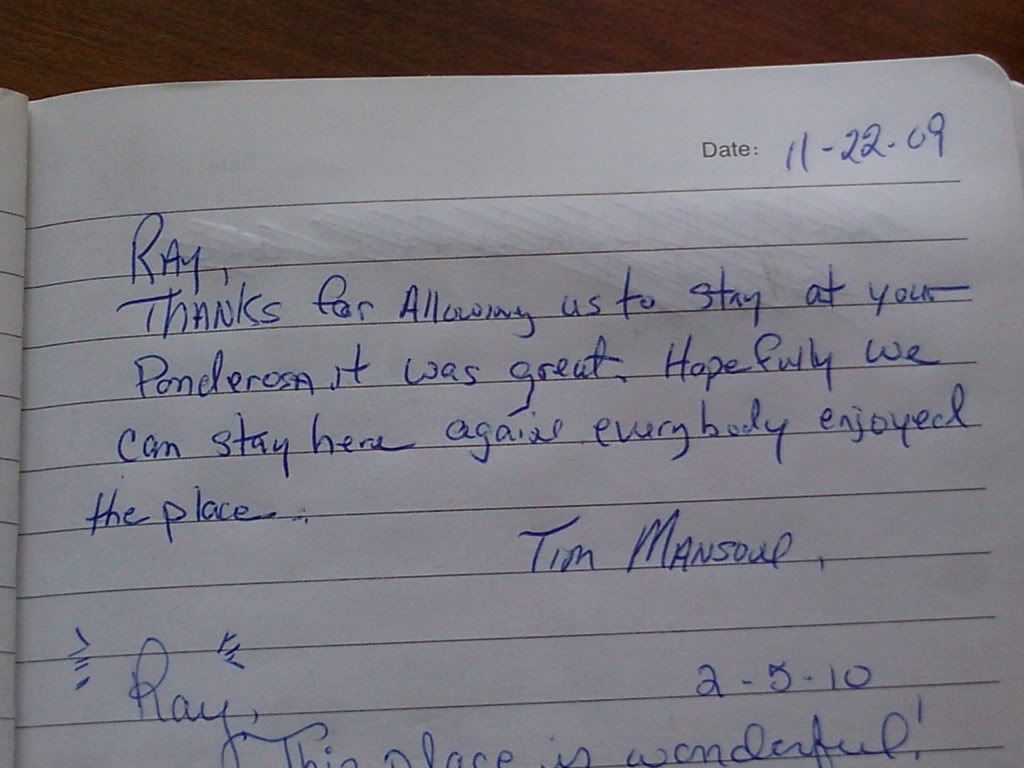 Date: 11-22-09
RAY,
THANKS for Allowing us to stay at your
Ponderosa, it was great. Hopefully we
can stay here again everybody enjoyed
the place.
Tim MANSOUR,
Ray,
2-5-10
This place is wonderful!